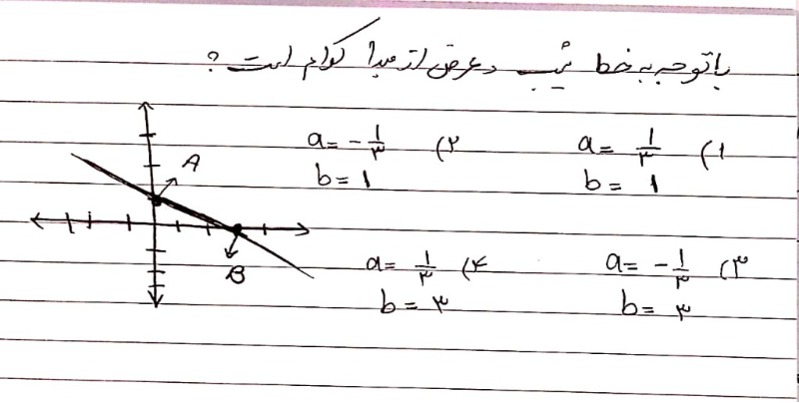 باتوجه به خط شیب و عرض از مبدا کدام است؟
۱) a = ۱/۳
b = ۱
۲) a = -۱/۳
b = ۱
A
B
۳) a = -۱/۳
b = ۳
۴) a = ۱/۳
b = ۳